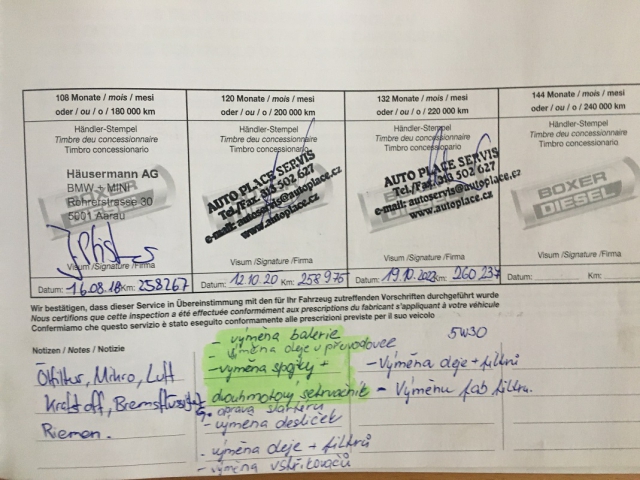 108 Monate / mois / mesi
oder / ou / o / 180 000 km
Händler-Stempel
Timbre deu concessionnaire
Timbro concessionario
Häusermann AG
BMW + MINI
Rohrerstrasse 30
5001 Aarau
Visum /Signature /Firma
Datum: 16.08.18 Km: 258267
120 Monate / mois / mesi
oder / ou / o / 200 000 km
Händler-Stempel
Timbre deu concessionnaire
Timbro concessionario
AUTO PLACE SERVIS
Tel./Fax. 313 502 627
e-mail: autoservis@autoplace.cz
www.autoplace.cz
Visum /Signature /Firma
Datum: 12.10.20 Km: 258975
132 Monate / mois / mesi
oder / ou / o / 220 000 km
Händler-Stempel
Timbre deu concessionnaire
Timbro concessionario
AUTO PLACE SERVIS
Tel./Fax. 313 502 627
e-mail: autoservis@autoplace.cz
www.autoplace.cz
Visum /Signature /Firma
Datum: 19.10.2022 Km: 260237
144 Monate / mois / mesi
oder / ou / o / 240 000 km
Händler-Stempel
Timbre deu concessionnaire
Timbro concessionario
BOXER
DIESEL
Visum /Signature /Firma
Datum: Km:
Wir bestätigen, dass dieser Service in Übereinstimmung mit den für Ihr Fahrzeug zutreffenden Vorschriften durchgeführt wurde
Nous certifions que cette inspection a été effectuée conformément aux prescriptions du fabricant s'appliquant à votre véhicule
Confermiamo che questo servizio è stato eseguito conformamente alle prescrizioni previste per il suo veicolo
Notizen / Notes / Notizie
Ölfilter, Mikro, Luft
Kraftstoff, Bremsflüssigkeit
Riemen.
- výměna baterie
- výměna oleje v převodovce
- výměna spojky +
dvouhmotový setrvačník
- oprava startéru
- výměna destiček
- výměna oleje + filtrů
- výměna vstřikovačů
5W30
- Výměna oleje + filtrů
- Výměna kab filtru.